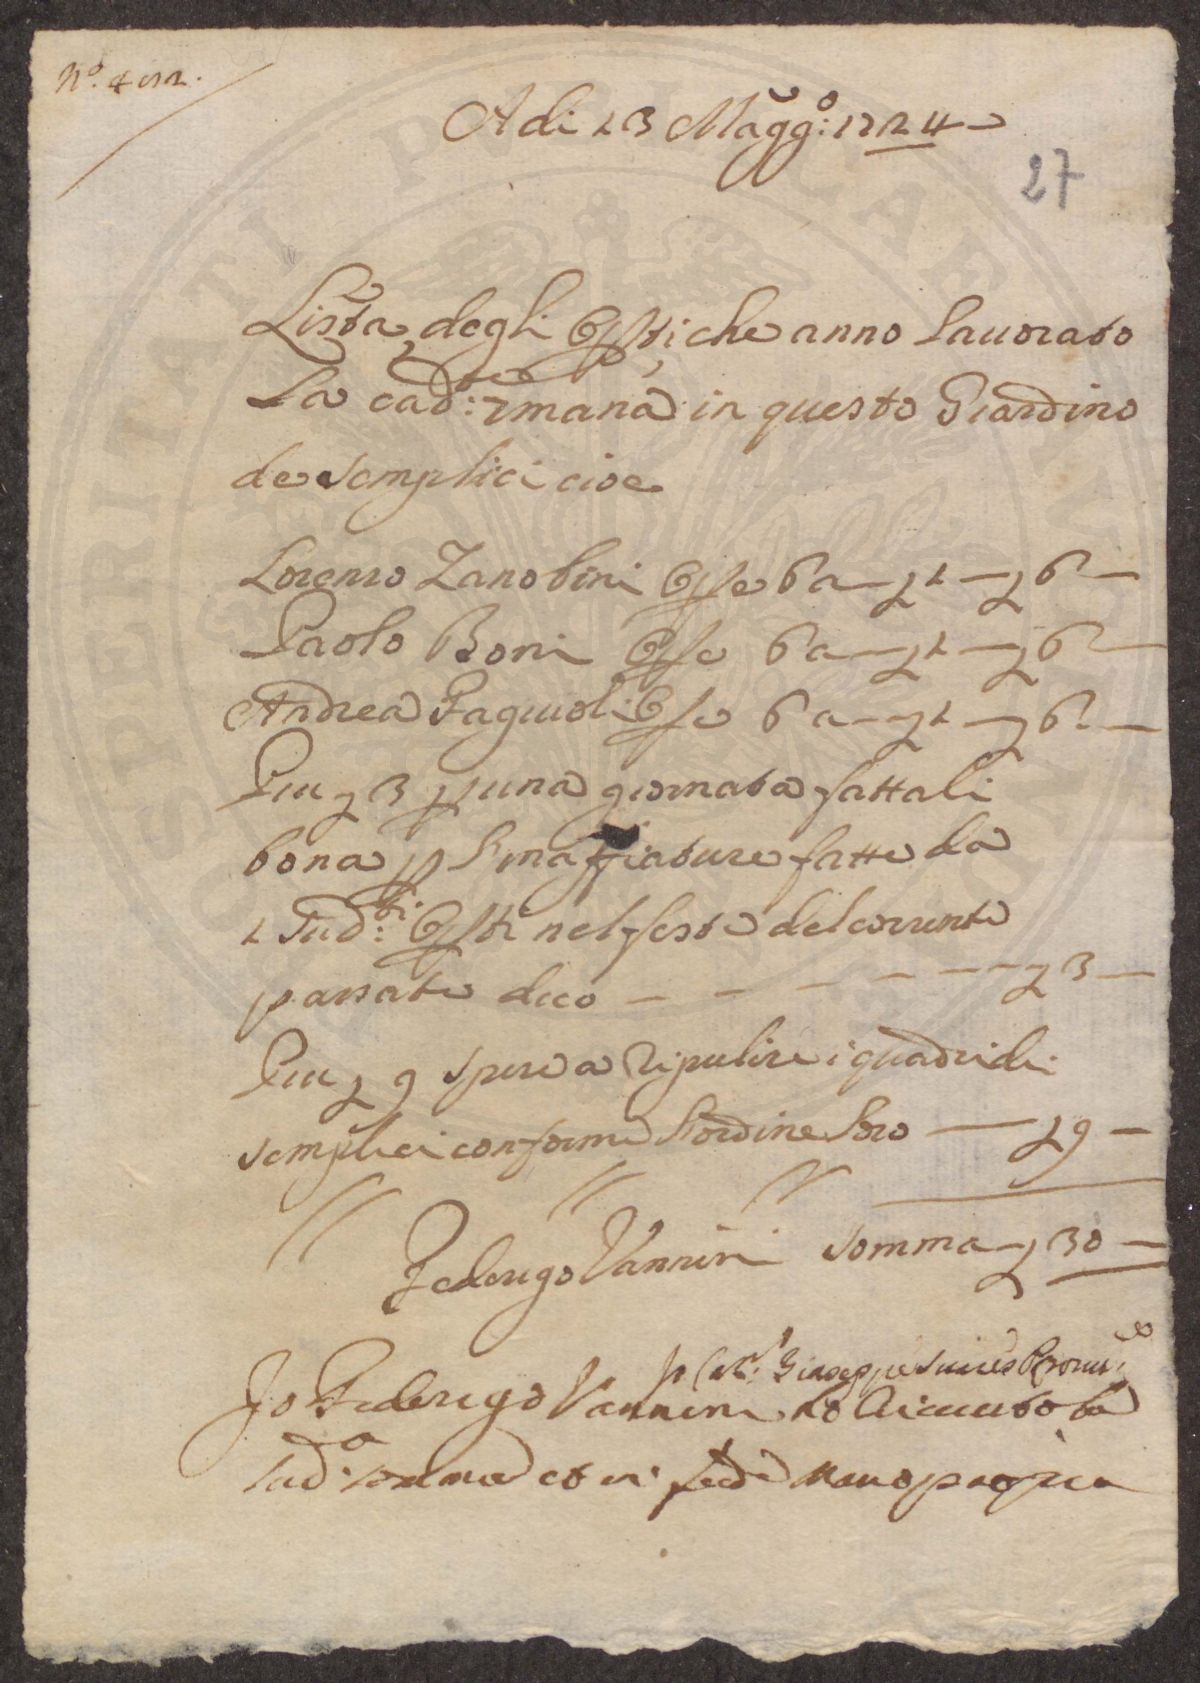 Adi 13 Magg:o 1724
27
Lista degli che anno Lauorato
La cad:te 7mana in questo Giardino
de semplici cioe
Lorenzo Zanobini 6 a £ 1 — £ 6 —
Paolo Boni 6 a — £ 1 — £ 6 —
Andrea Fagiuoli 6 a — £ 1 — £ 6 —
Piu £ 3 p una giornata fattali
bona p l'inaffiature fatte da
i sud:ti nel feste del corrente
passate dico — — — — — £ 3 —
Piu £ 9 spese a Ripulire i quadri di
semplici conforme l'ordine loro — £ 9 —
Federigo Vannini somma £ 30 —
Giuseppe
Jo Federigo Vannini ho Riceuto la
sud:a somma et in fede mano propria